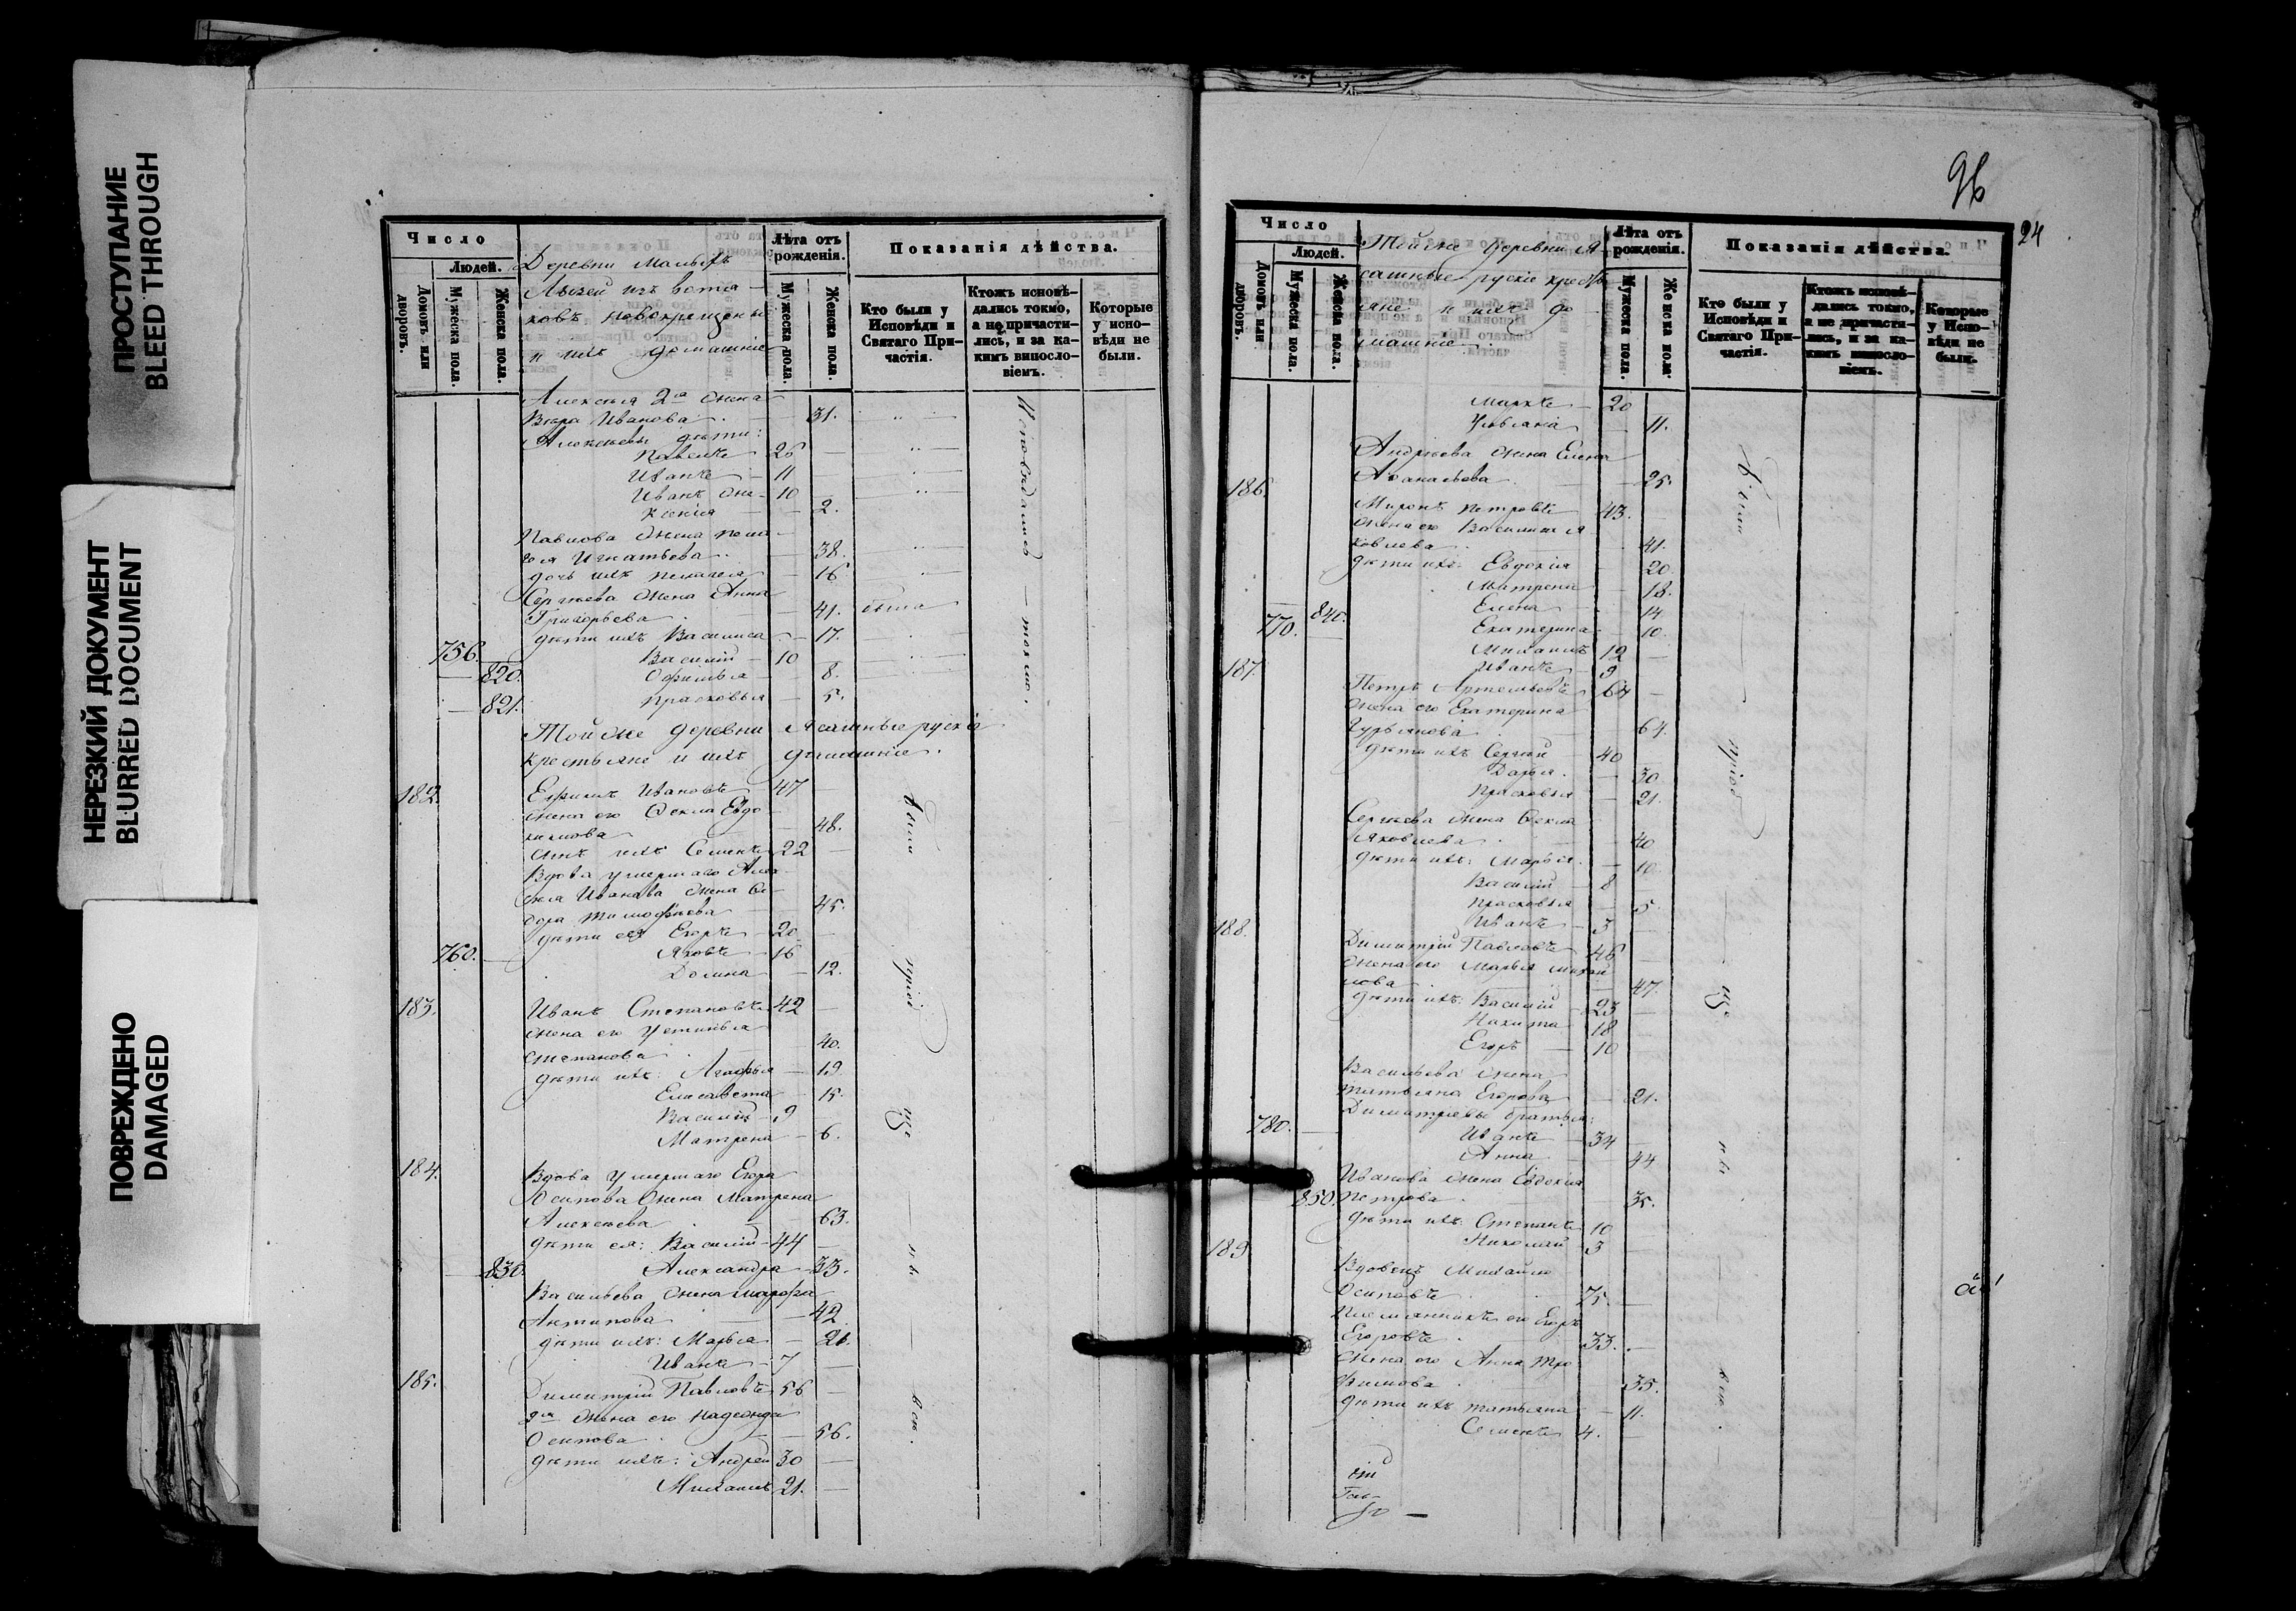 ПРОСТУПАНИЕ
BLEED THROUGH
НЕРЕЗКИЙ ДОКУМЕНТ
BLURRED DOCUMENT
ПОВРЕЖДЕНО
DAMAGED
Число
Людей.
Домовъ или дворовъ.
Мужеска пола.
Женска пола.
Деревни Малыхъ
новокрещеные
и ихъ домашніе
Лѣта отъ рожденія.
Мужеска пола.
Женска пола.
Показанія дѣйства.
Кто были у Исповѣди и Святаго Причастія.
Ктожъ исповѣдались токмо, а не причастились, и за какимъ винословіемъ.
Которые у исповѣди не были.
Алексѣя 2я жена
Вѣра Иванова 31.
Алексѣевы дѣти:
Павелъ 26
Иванъ 11
Иванъ же 10
Ксенія 2.
Павлова жена Пела-
гея Игнатьева 38.
дочь ихъ Пелагея 16
Сергѣева жена Анна
Григорьева 41. была
дѣти ихъ Василиса 17.
756. Василій 10
820. Офимья 8.
821. Прасковья 5.
Исповѣдались токмо.
Той же деревни Ясашные рускіе
крестьяне и ихъ домашніе.
182. Ефимъ Ивановъ 47
жена его Ѳекла Евдо-
кимова 48.
сынъ ихъ Семенъ 22
Вдова умершаго Алек-
сѣя Иванова жена Ѳе-
дора Тимофѣева 45.
дѣти ея Егоръ 20
760. Яковъ 16
Домна 12.
183. Иванъ Степановъ 42
жена его Устинья
Степанова 40.
дѣти ихъ: Агафья 19
Елисавета 15.
Василій 9
Матрена 6.
184. Вдова умершаго Егора
Осипова жена Матрена
Алексѣева 63.
дѣти ея: Василій 44
830. Александра 33.
Васильева жена Марфа
Антипова 42.
дѣти ихъ: Марья 21.
Иванъ 7
185. Димитрій Павловъ 56
2я жена его Надежда
Осипова 56.
дѣти ихъ: Андрей 30
Михаилъ 21.
были
96
24
Число
Людей.
Домовъ или дворовъ.
Мужеска пола.
Женска пола.
Той же деревни Я-
сашные рускіе крестья-
яне и ихъ до-
машніе.
Лѣта отъ рожденія.
Мужеска пола.
Женска пола.
Показанія дѣйства.
Кто были у Исповѣди и Святаго Причастія.
Ктожъ исповѣдались токмо, а не причастились, и за какимъ винословіемъ.
Которые у Исповѣди не были.
Маркъ 20
Ульяна 11.
Андрѣева жена Елена
Аѳанасьева 25.
186. Миронъ Петровъ 43.
жена его Василиса Я-
ковлева 41.
дѣти ихъ: Евдокія 20
Матрена 18.
840. Елена 14
770. Екатерина 10.
Михаилъ 12
Иванъ 9
187. Петръ Артемьевъ 64
жена его Екатерина
Гурьянова 64.
дѣти ихъ Сергѣй 40
Дарья 30.
Прасковья 21.
Сергѣева жена Ѳекла
Яковлева 40
дѣти ихъ: Марья 10
Василій 8
Прасковья 5.
Иванъ 3
188. Димитрій Павловъ 46
жена его Марья Михай-
лова 47.
дѣти ихъ: Василій 23
Никита 18
Егоръ 10
Васильева жена
Татьяна Егорова 21.
Димитріевы братья:
780. Иванъ 34
Анна 44
Иванова жена Евдокія
850. Петрова 35.
дѣти ихъ: Степанъ 10
Николай 3
189 Вдовецъ Михаилъ
Осиповъ 75.
Племянникъ его Егоръ
Егоровъ 33.
жена его Анна Тро-
фимова 35.
дѣти ихъ Татьяна 11.
Семенъ 4.
были